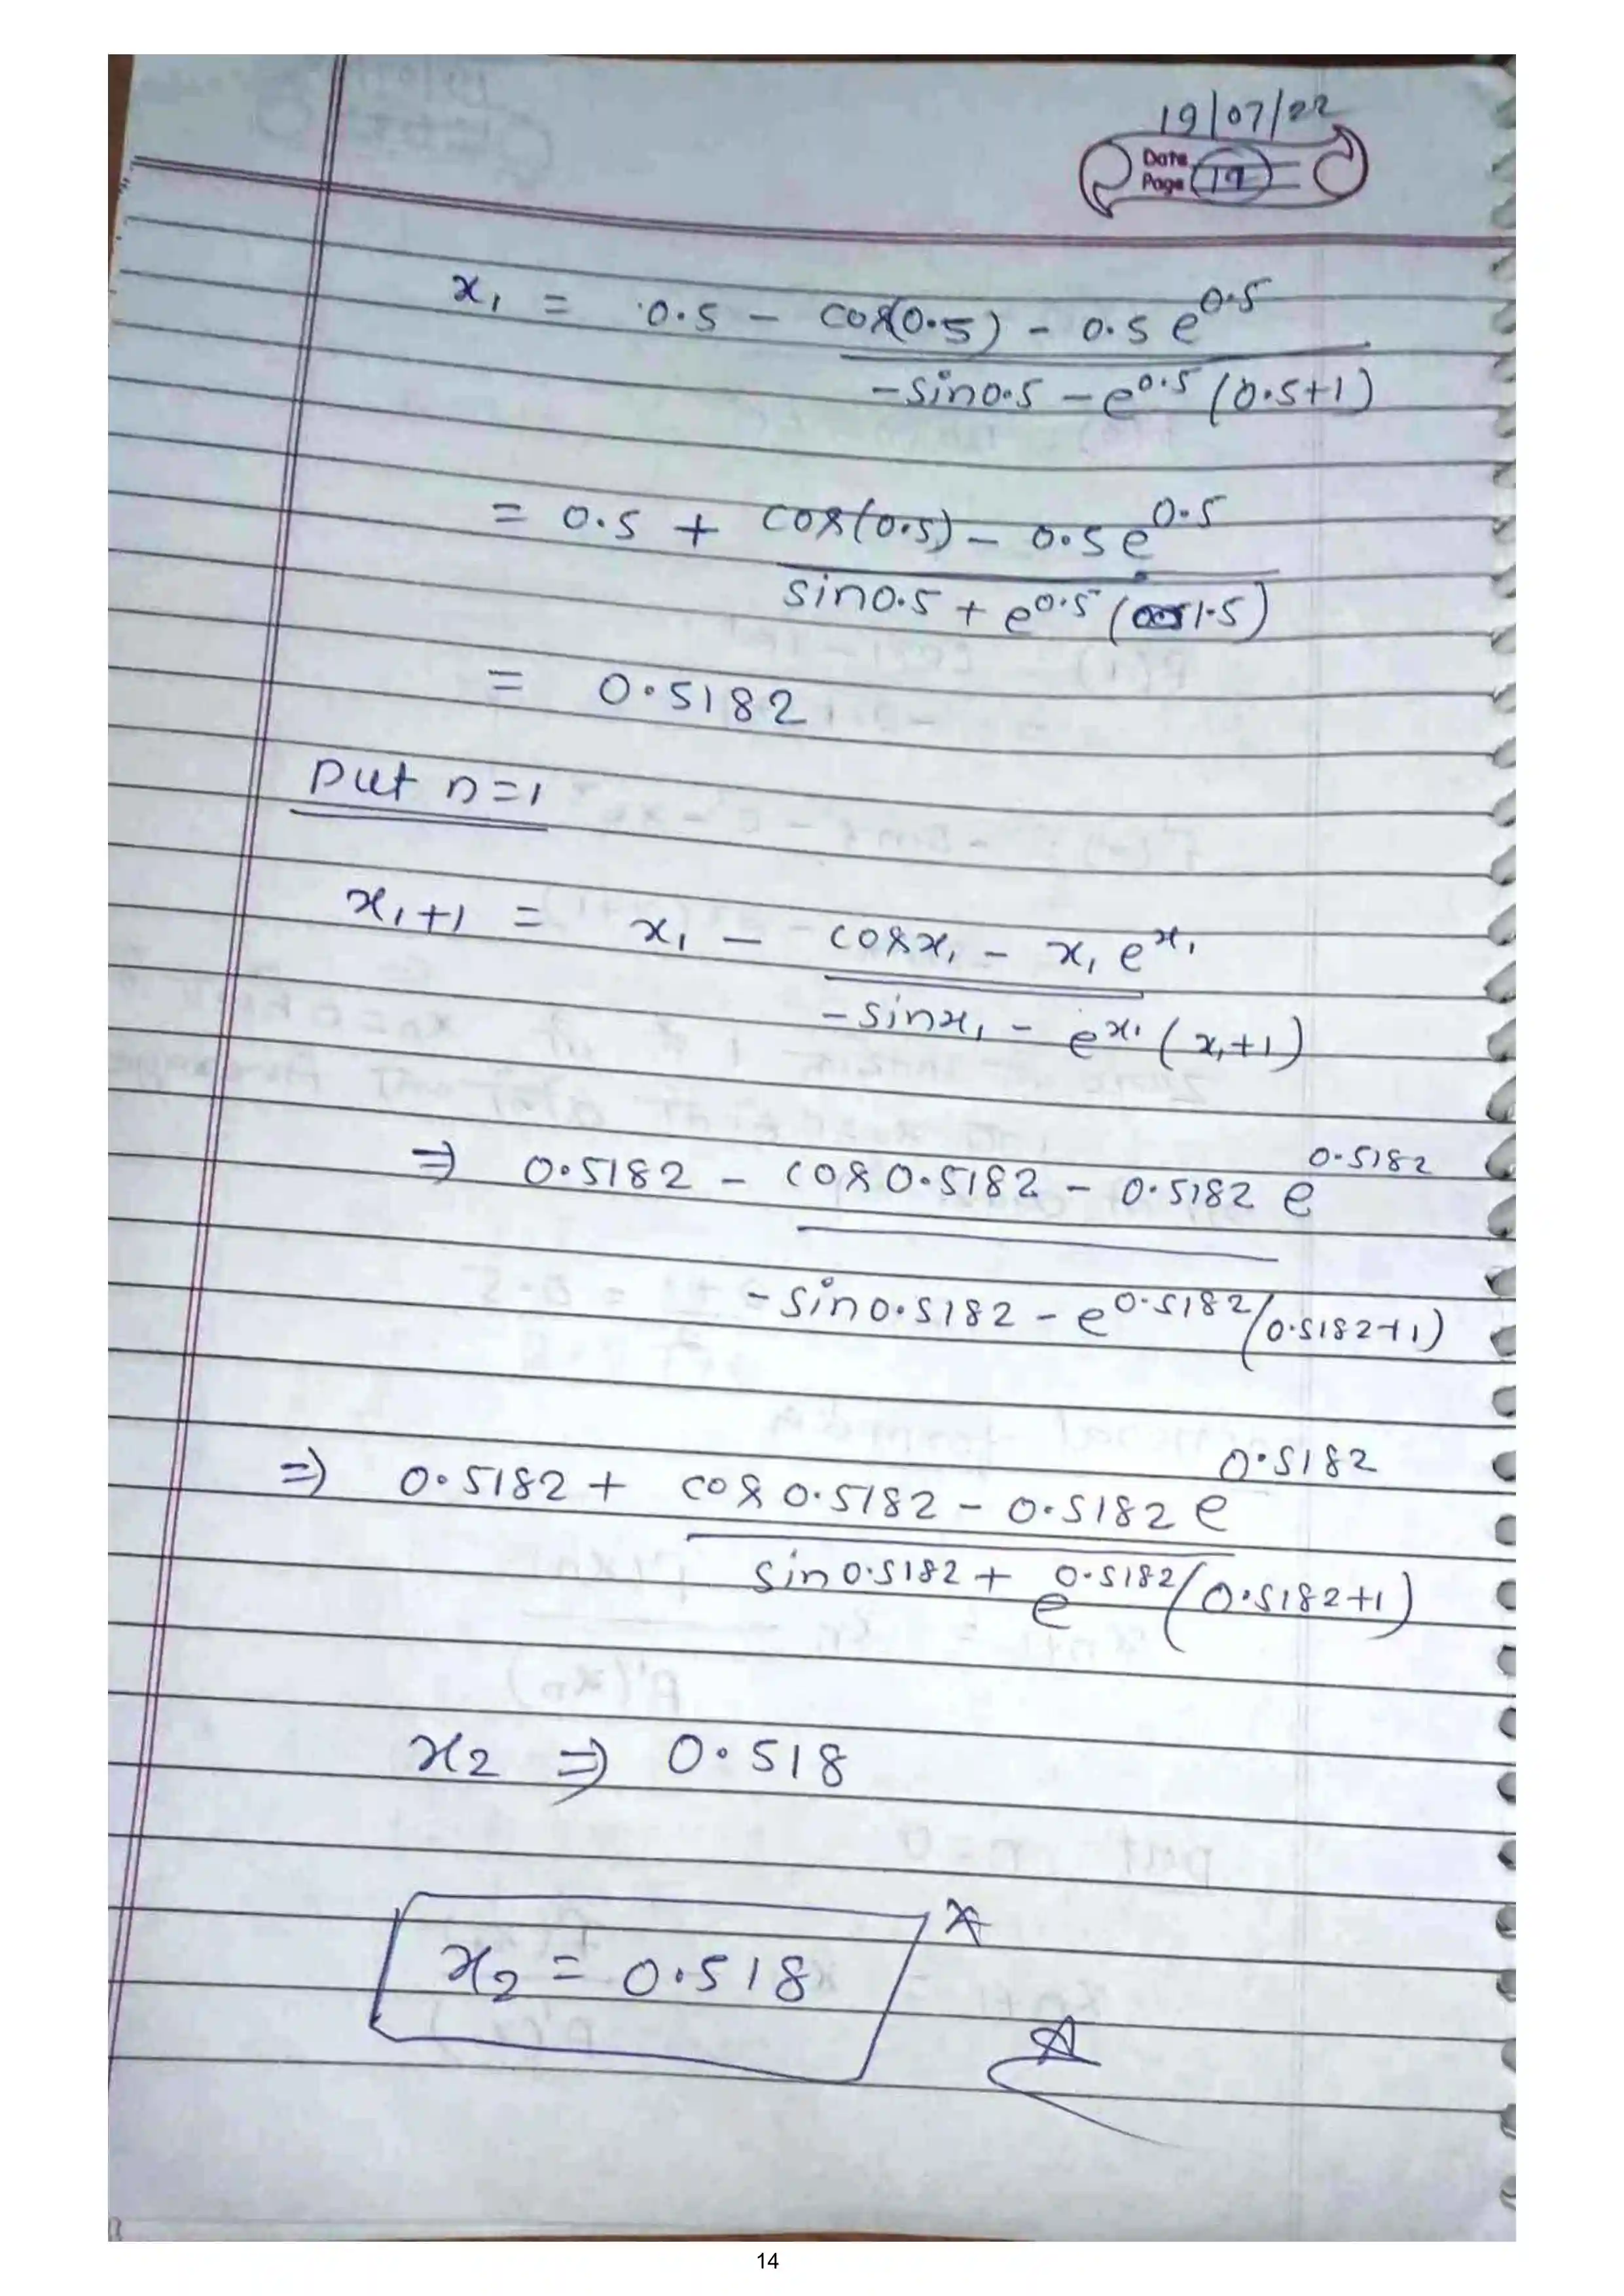 19/07/22
Date
Page 19
x₁ = 0.5 - cos(0.5) - 0.5 e^0.5
-sin0.5 - e^0.5 (0.5+1)
= 0.5 + cos(0.5) - 0.5 e^0.5
sin0.5 + e^0.5 (1.5)
= 0.5182
put n=1
x₁+1 = x₁ - cosx₁ - x₁ e^x₁
-sinx₁ - e^x₁ (x₁+1)
⇒ 0.5182 - cos0.5182 - 0.5182 e^0.5182
-sin0.5182 - e^0.5182 (0.5182+1)
⇒ 0.5182 + cos0.5182 - 0.5182 e^0.5182
sin0.5182 + e^0.5182 (0.5182+1)
x₂ ⇒ 0.518
x₂ = 0.518
14